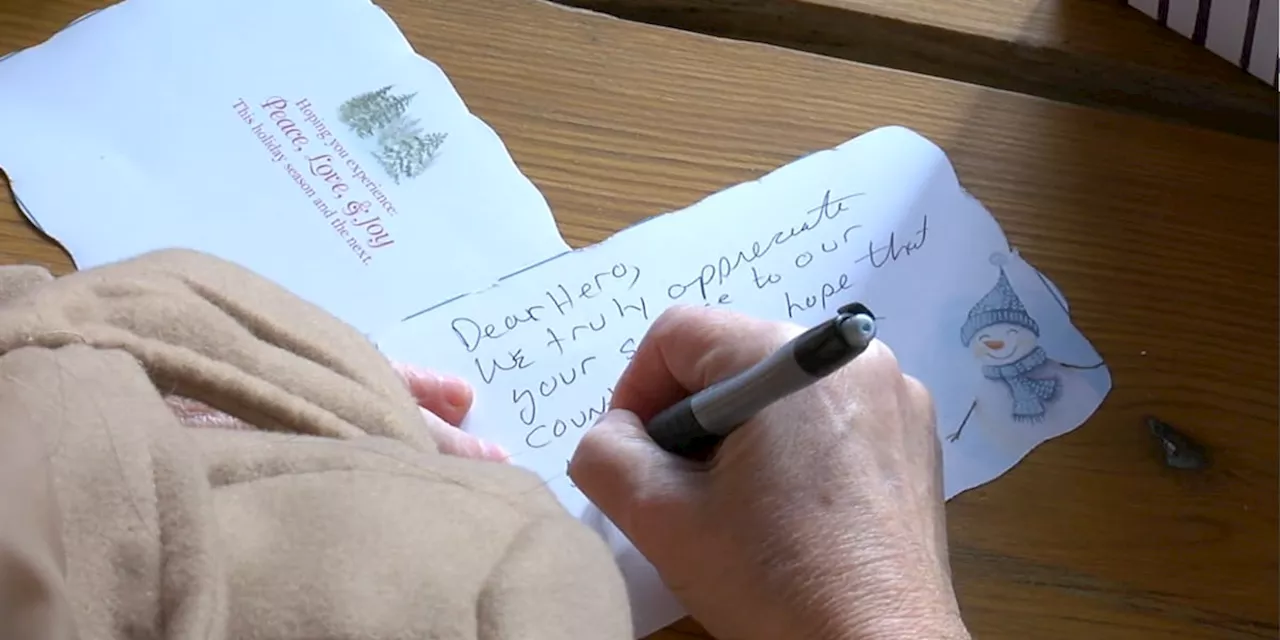 Hoping you experience:
Peace, Love, & Joy
This holiday season and the next.
Dear Hero,
We truly appreciate
your to our
hope that